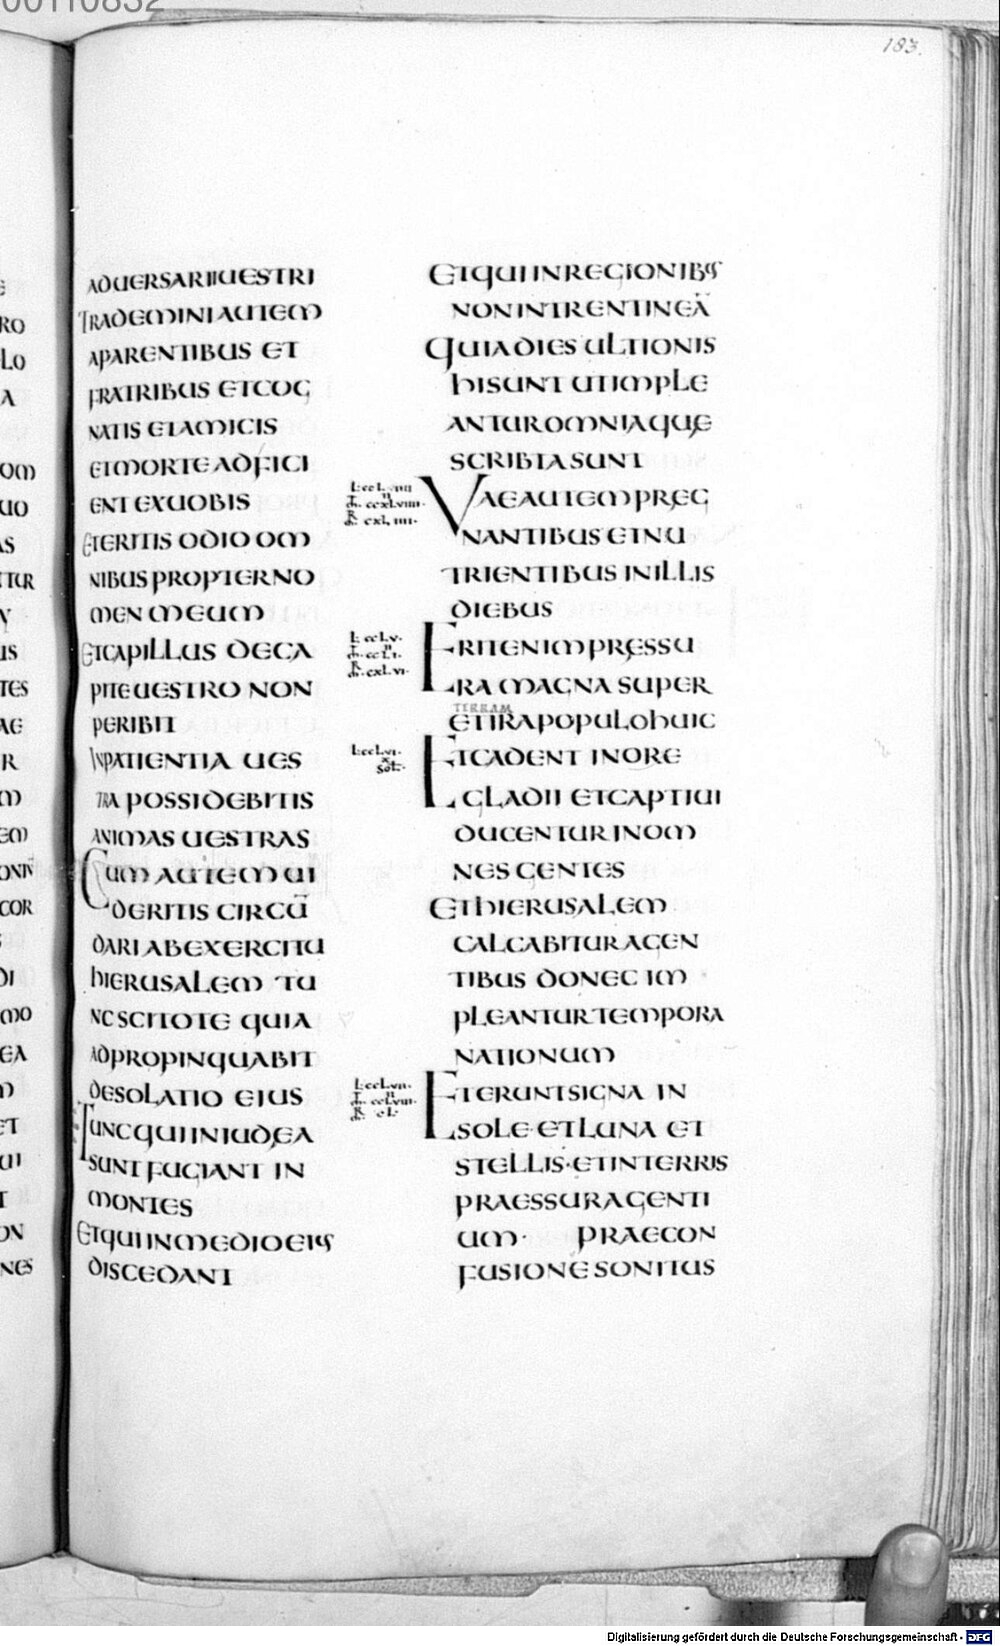 183.
ADUERSARIIUESTRI
TRADEMINIAUTEM
APARENTIBUS ET
FRATRIBUS ETCOG
NATIS ETAMICIS
ETMORTEADFICI
ENT EXUOBIS
ETERITIS ODIO OM
NIBUSPROPTERNO
MEN MEUM
ETCAPILLUS DECA
PITEUESTRO NON
PERIBIT
INPATIENTIA UES
TRA POSSIDEBITIS
ANIMAS UESTRAS
CUM AUTEM UI
DERITIS CIRCŪ
DARI ABEXERCITU
HIERUSALEM TU
NC SCITOTE QUIA
ADPROPINQUABIT
DESOLATIO EIUS
TUNCQUIINIUDĘA
SUNT FUGIANT IN
MONTES
ETQUIINMEDIOEIUS
DISCEDANT
ETQUIINREGIONIBUS
NONINTRENTINEĀ
QUIADIES ULTIONIS
HISUNT UTIMPLE
ANTUROMNIAQUĘ
SCRIBTASUNT
UAEAUTEMPREG
NANTIBUS ETNU
TRIENTIBUS INILLIS
DIEBUS
ERITENIMPRESSU
RA MAGNA SUPER
TERRAM
ETIRAPOPULOHUIC
ETCADENT INORE
GLADII ETCAPTIUI
DUCENTUR INOM
NES GENTES
ETHIERUSALEM
CALCABITURAGEN
TIBUS DONEC IM
PLEANTURTEMPORA
NATIONUM
ETERUNTSIGNA IN
SOLE·ETLUNA ET
STELLIS·ETINTERRIS
PRAESSURAGENTI
UM· PRAECON
FUSIONESONITUS
Digitalisierung gefördert durch die Deutsche Forschungsgemeinschaft - DFG